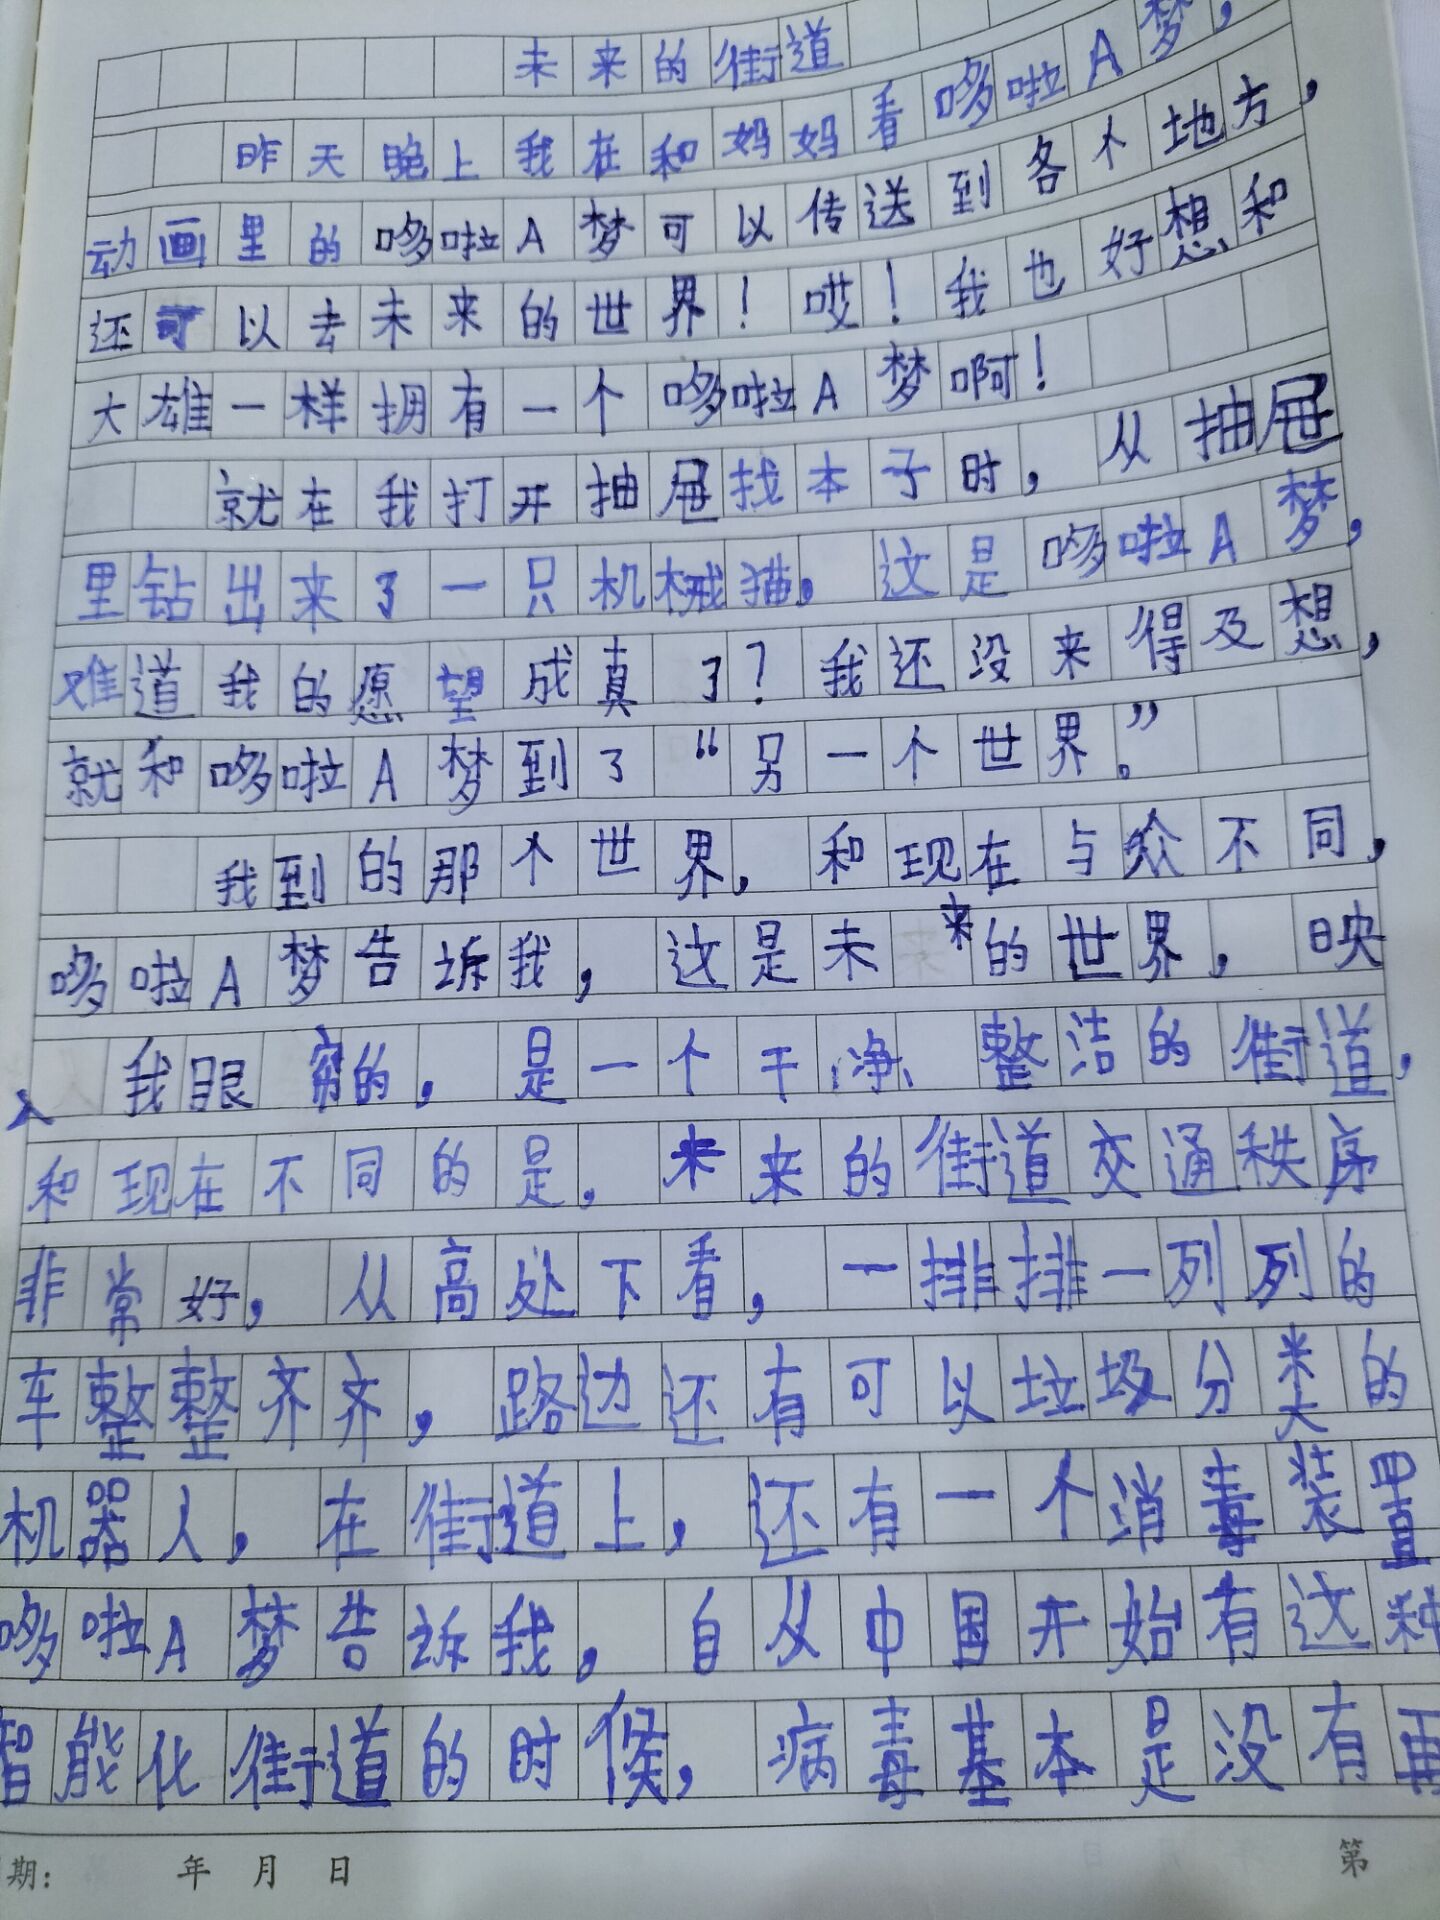 未来的街道
昨天晚上我在和妈妈看哆啦A梦,
动画里的哆啦A梦可以传送到各个地方,
还可以去未来的世界!哎!我也好想和
大雄一样拥有一个哆啦A梦啊!
就在我打开抽屉找本子时,从抽屉
里钻出来了一只机械猫。这是哆啦A梦,
难道我的愿望成真了?我还没来得及想,
就和哆啦A梦到了“另一个世界。”
我到的那个世界,和现在与众不同,
哆啦A梦告诉我,这是未来的世界,映
入我眼帘的,是一个干净、整洁的街道,
和现在不同的是。未来的街道交通秩序
非常好,从高处下看,一排排一列列的
车整整齐齐,路边还有可以垃圾分类的
机器人,在街道上,还有一个消毒装置
哆啦A梦告诉我,自从中国开始有这种
智能化街道的时候,病毒基本是没有再
期: 年 月 日 第